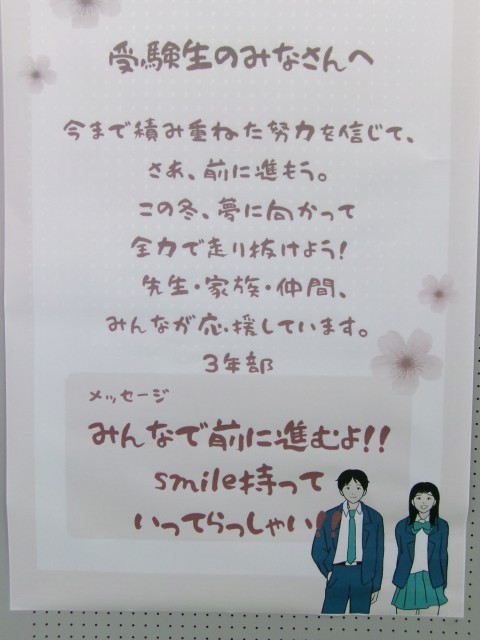 受験生のみなさんへ
今まで積み重ねた努力を信じて、
さあ、前に進もう。
この冬、夢に向かって
全力で走り抜けよう!
先生・家族・仲間、
みんなが応援しています。
3年部
メッセージ
みんなで前に進むよ!!
smile持って
いってらっしゃい!!